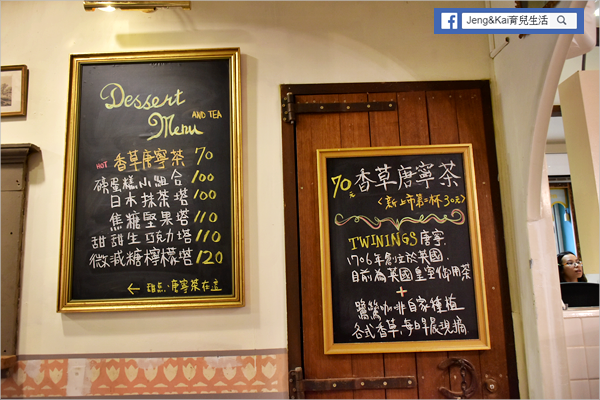 Jeng&Kai育兒生活
Dessert
AND TEA
Menu
HOT 香草唐寧茶 70
磅蛋糕小組合 100
日本抹茶塔 100
焦糖堅果塔 110
甜甜生巧克力塔 110
微減糖檸檬塔 120
← 甜点、唐寧茶在這
70元 香草唐寧茶
<新上市第2杯30元>
TWININGS唐寧,
1706年創立於英國,
目前為英國皇室御用茶
+
鷺鷥咖啡自家種植
各式香草,每日早晨現摘